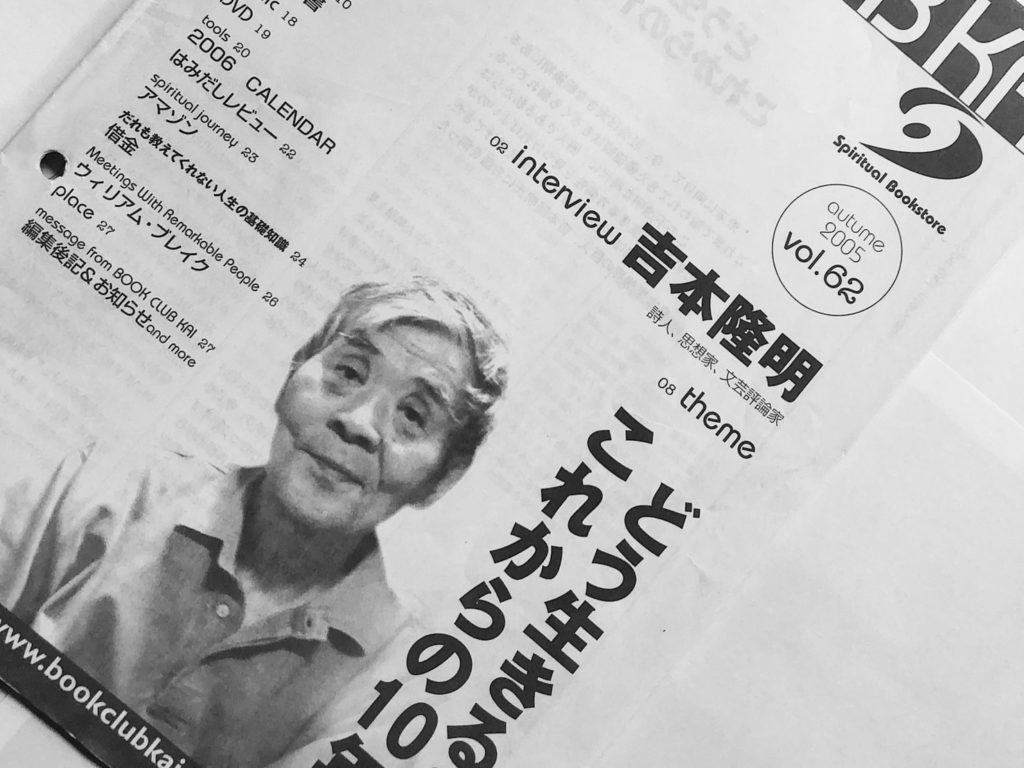 10
18
DVD 19
tools 20
2006 CALENDAR
はみだしレビュー 22
spiritual journey 23
アマゾン
だれも教えてくれない人生の基礎知識 24
借金
Meetings With Remarkable People 26
ウィリアム・ブレイク
place 27
message from BOOK CLUB KAI 27
編集後記&お知らせand more
Spiritual Bookstore
autumne
2005
vol.62
02 interview 吉本隆明
詩人、思想家、文芸評論家
08 theme
どう生きる
これからの10年
www.bookclubkai